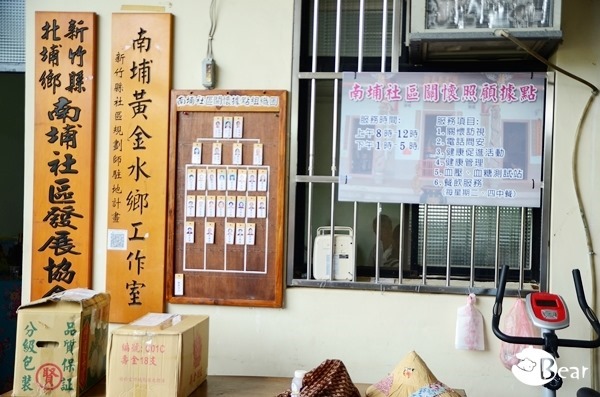 新竹縣
北埔鄉
南埔社區發展協
南埔黃金水鄉工作室
新竹縣社區規劃師駐地計畫
南埔社區關懷據點組織圖
南埔社區關懷照顧據點
服務時間:
上午8:12時
下午1:5時
服務項目:
1.關懷訪視
2.電話問安
3.健康促進活動
4.健康管理
5.血壓、血糖測試站
6.餐飲服務
每星期二、四中餐
品質保証
分級包裝
賢
編號:C01C
壽金18支
Bear